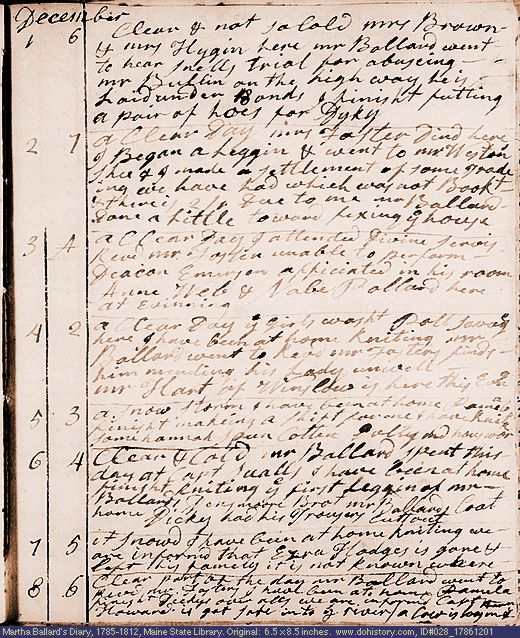 December
1 6 Clear & not so Cold mrs Brown
& mrs Hygin here mr Ballard went
to hear Snells trial for abuseing
mr Butlin on the high way he is
Laid under Bonds I finisht futting
a pair of hoes for Dyky
2 7 a Clear Day mrs Foster Dind here
I Began a leggin & went to mr Weston
Shee & I made a settlement of some trade
ing we have had which was not Bookt
& there is due to me mr Ballard
Done a little toward fixing ye house
3 A a Clear Day I attended Divine Servis
Revd mr Foster unable to perform
Deacon Emerson officiated in his room
Anne Web & Nabe Pollard here
at Evining
4 2 a Clear Day ye girls washt Poll Savag
here I have been at home kniting mr
Ballard went to Revd mr Fosters finds
him mending his Lady unwell
mr Hart of Winslow is here this Eve
5 3 a Snow Storm I have been at home
finisht makeing a shift for one & have knit
some hannah spun Cotten Dolly did housework
6 4 Clear & Cold mr Ballard spent this
day at Capt Sealls I have been at home
finisht kniting ye first leggin of mr
Ballards Ben more Brot mr Ballards Coat
home Dicky had his Trowsers Cuttout
7 5 it Snowd I have been at home kniting we
are informd that Ezra Hodges is gone &
left his family it is not known where
8 6 Clear part of the day mr Ballard went to
Revd mr Fosters I have been at home Pamela
we are informd Capt
is got safe into ye river
Martha Ballard's Diary, 1785-1812, Maine State Library. Original: 6.5 x 8.5 inches. www.dohistory.org, DIA028_17861201